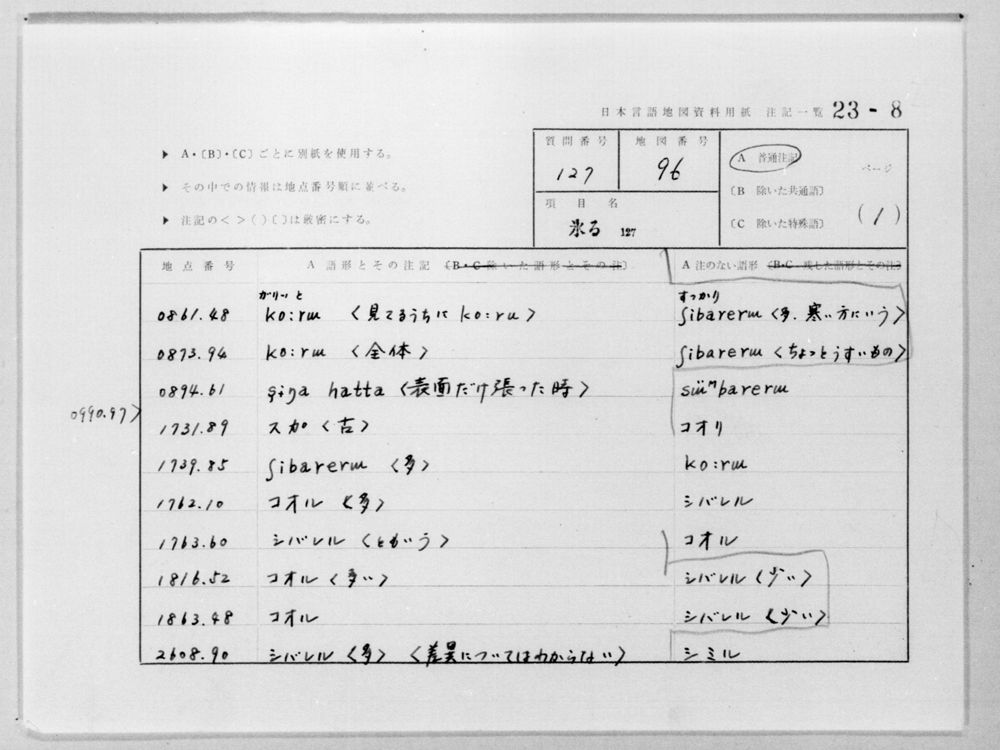 日本言語地図資料用紙 注記一覧 23-8
▶ A・〔B〕・〔C〕ごとに別紙を使用する。
▶ その中での情報は地点番号順に並べる。
▶ 注記の< >( )〔 〕は厳密にする。
質問番号 127
地図番号 96
項目名 氷る 127
A 普通注記
〔B 除いた共通語〕
〔C 除いた特殊語〕
ページ
(1)
地点番号 A 語形とその注記 〔B・C 除いた語形とその注〕 A 注のない語形 〔B・C 残した語形とその注〕
がりッと すっかり
0861.48 ko:rɯ <見てるうちに ko:ru> ʃibarerɯ <多. 寒い方にいう>
0873.94 ko:rɯ <全体> ʃibarerɯ <ちょっとうすいもの>
0894.61 hatta <表面だけ張った時> sɯ̈ⁿbarerɯ
0990.97>
1731.89 スガ <古> コオリ
1739.85 ʃibarerɯ <多> ko:rɯ
1762.10 コオル <多> シバレル
1763.60 シバレル <ともいう> コオル
1816.52 コオル <多い> シバレル <少い>
1863.48 コオル シバレル <少い>
2608.90 シバレル <多> <差異についてはわからない> シミル